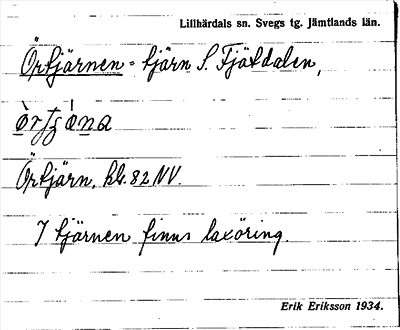 Lillhärdals sn. Svegs tg. Jämtlands län.
Örtjärnen = tjärn S. Fjätdalen,
Örtjärn, bl. 82 NV.
I tjärnen finns laxöring.
Erik Eriksson 1934.